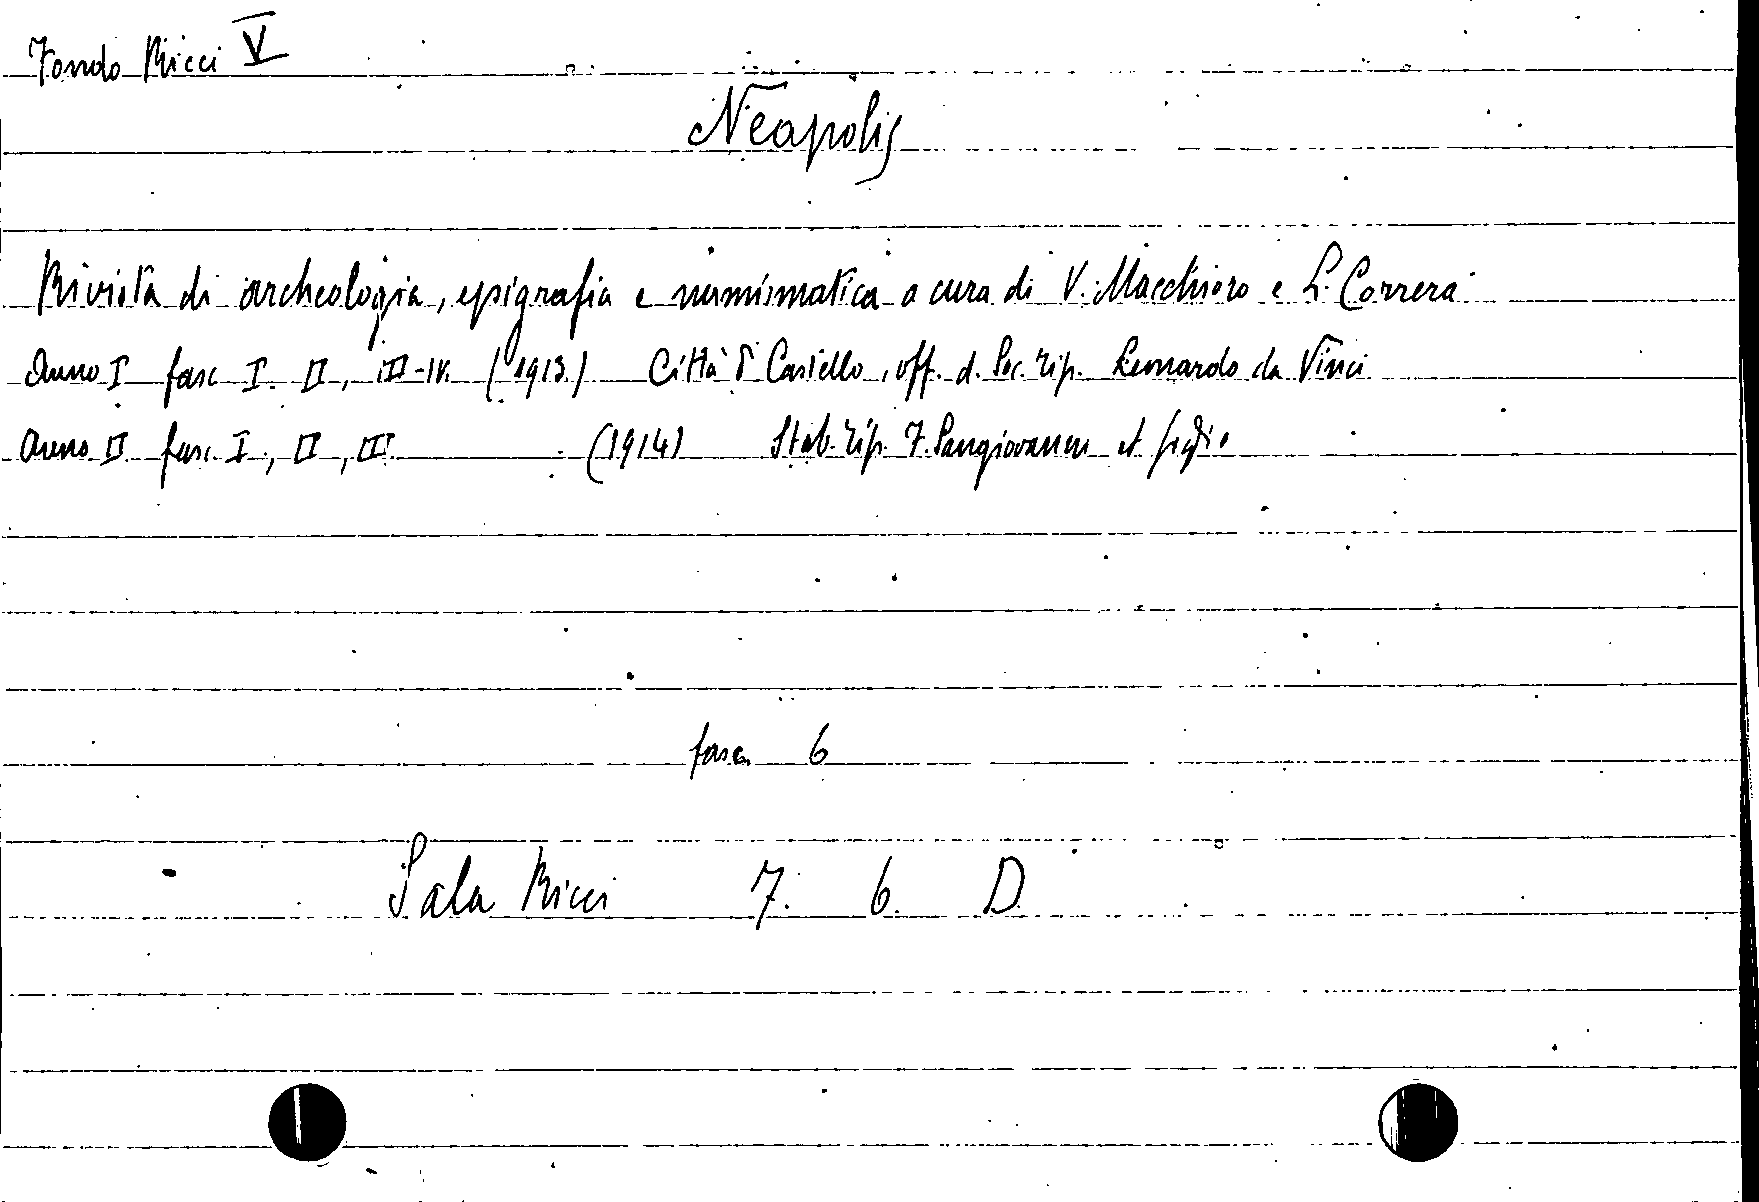 Fondo Ricci V
Neapolis
Rivista di archeologia, epigrafia e numismatica a cura di V. Macchioro e L. Correra
Anno I fasc I. II, III-IV. (1913) Città d Castello, off. d. Soc. Tip. Leonardo da Vinci
Anno II fasc. I, II, III (1914) Stab. Tip. F. Sangiovanni et figlio
fasc. 6
Sala Ricci 7. 6. D